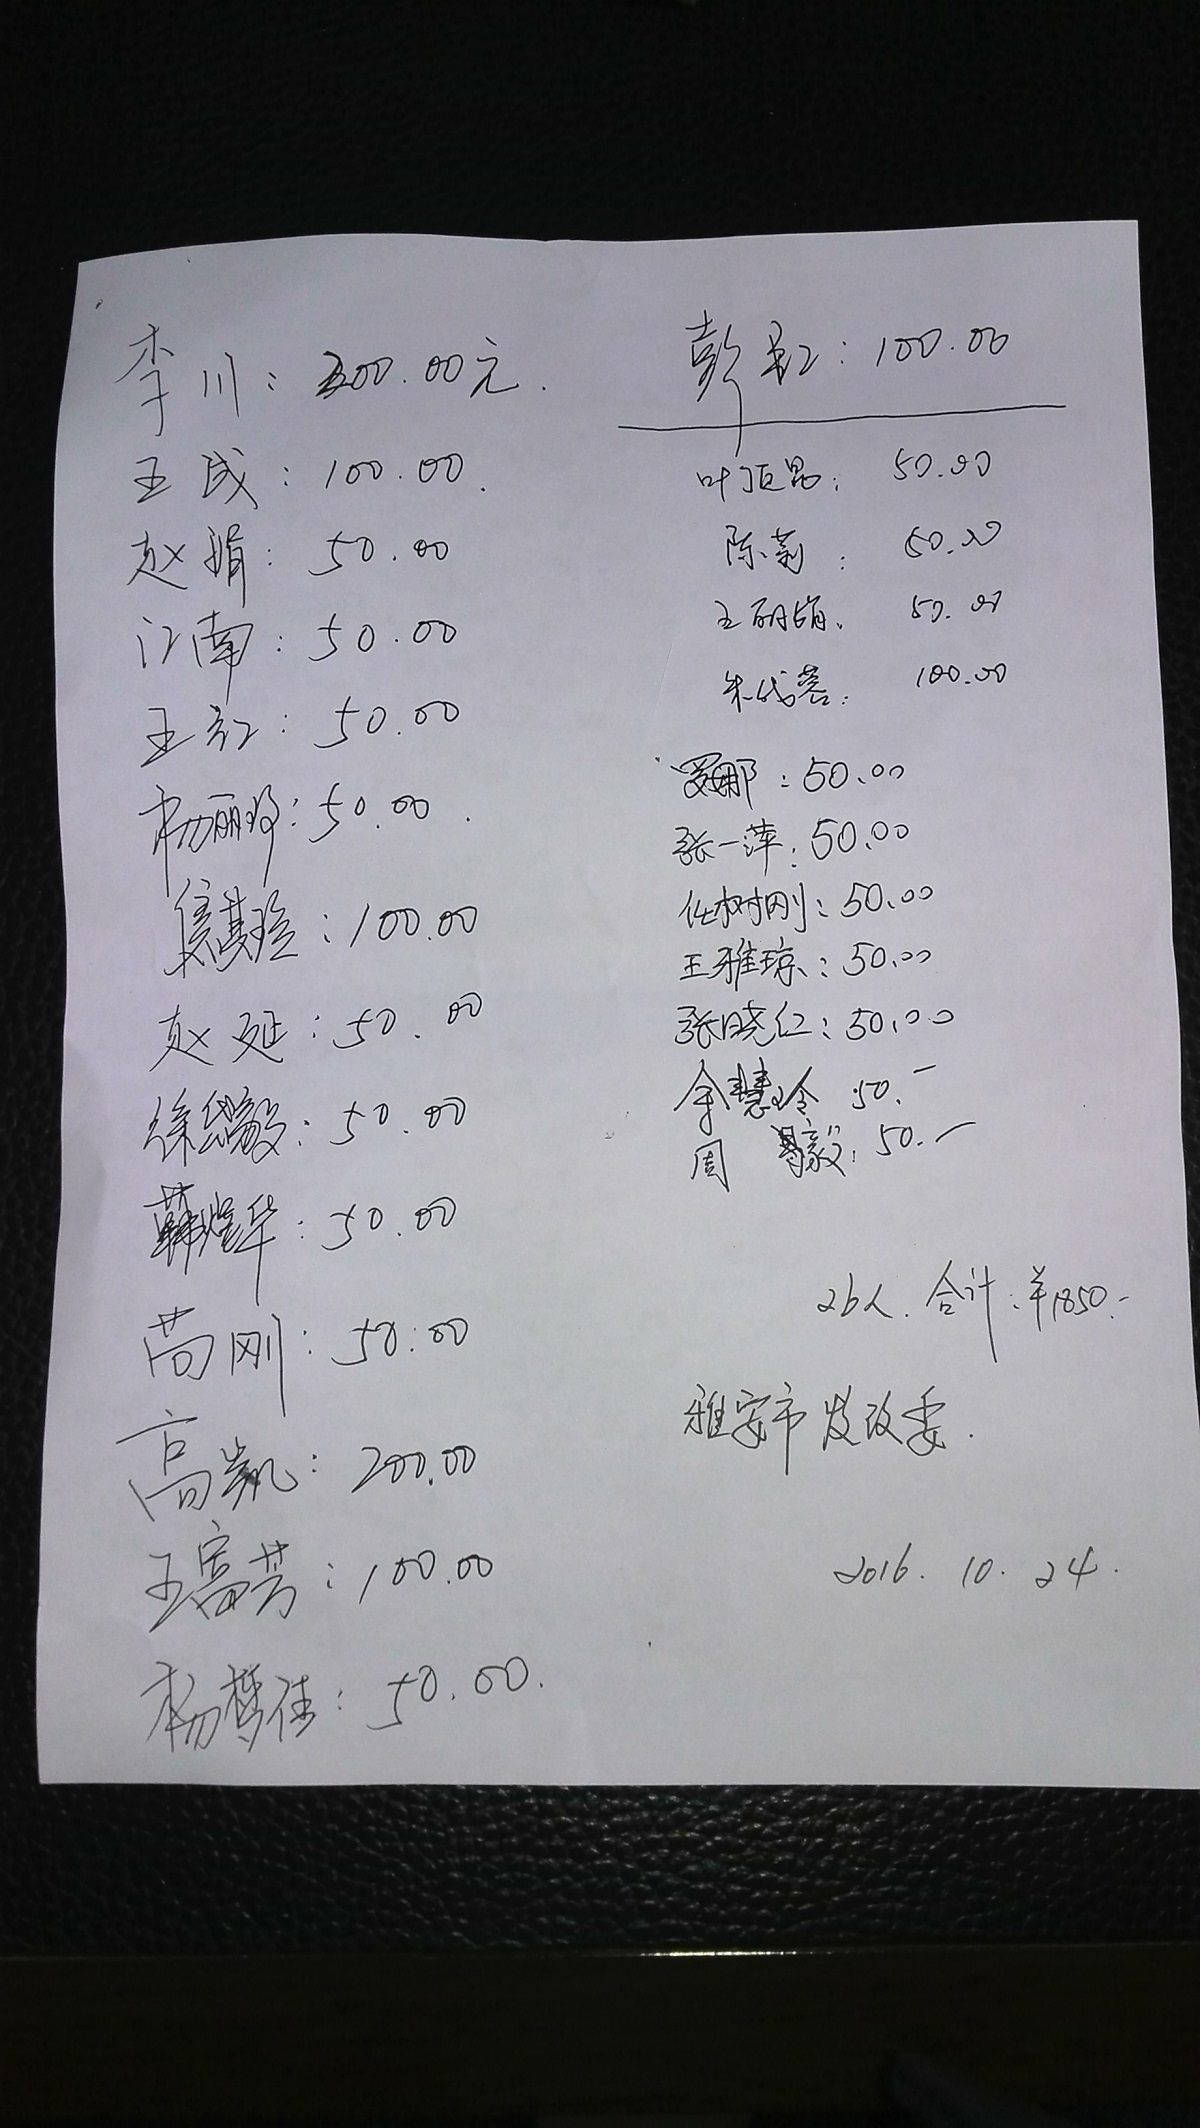 李川：200.00元.
王成：100.00.
赵娟：50.00
江南：50.00
王红：50.00
杨丽：50.00.
侯其珍：100.00
赵延：50.00
徐岱毅：50.00
韩煜华：50.00
苟刚：50.00
高凯：200.00
王富芳：100.00
杨梦佳：50.00.
彭虹：100.00
叶：50.00
陈莉：50.00
王丽娟：50.00
朱代蓉：100.00
罗娜：50.00
张一萍：50.00
任树刚：50.00
王雅琼：50.00
张晓红：50.00
余慧玲 50.-
周毅：50.-
26人.合计：￥1850.-
雅安市发改委.
2016.10.24.